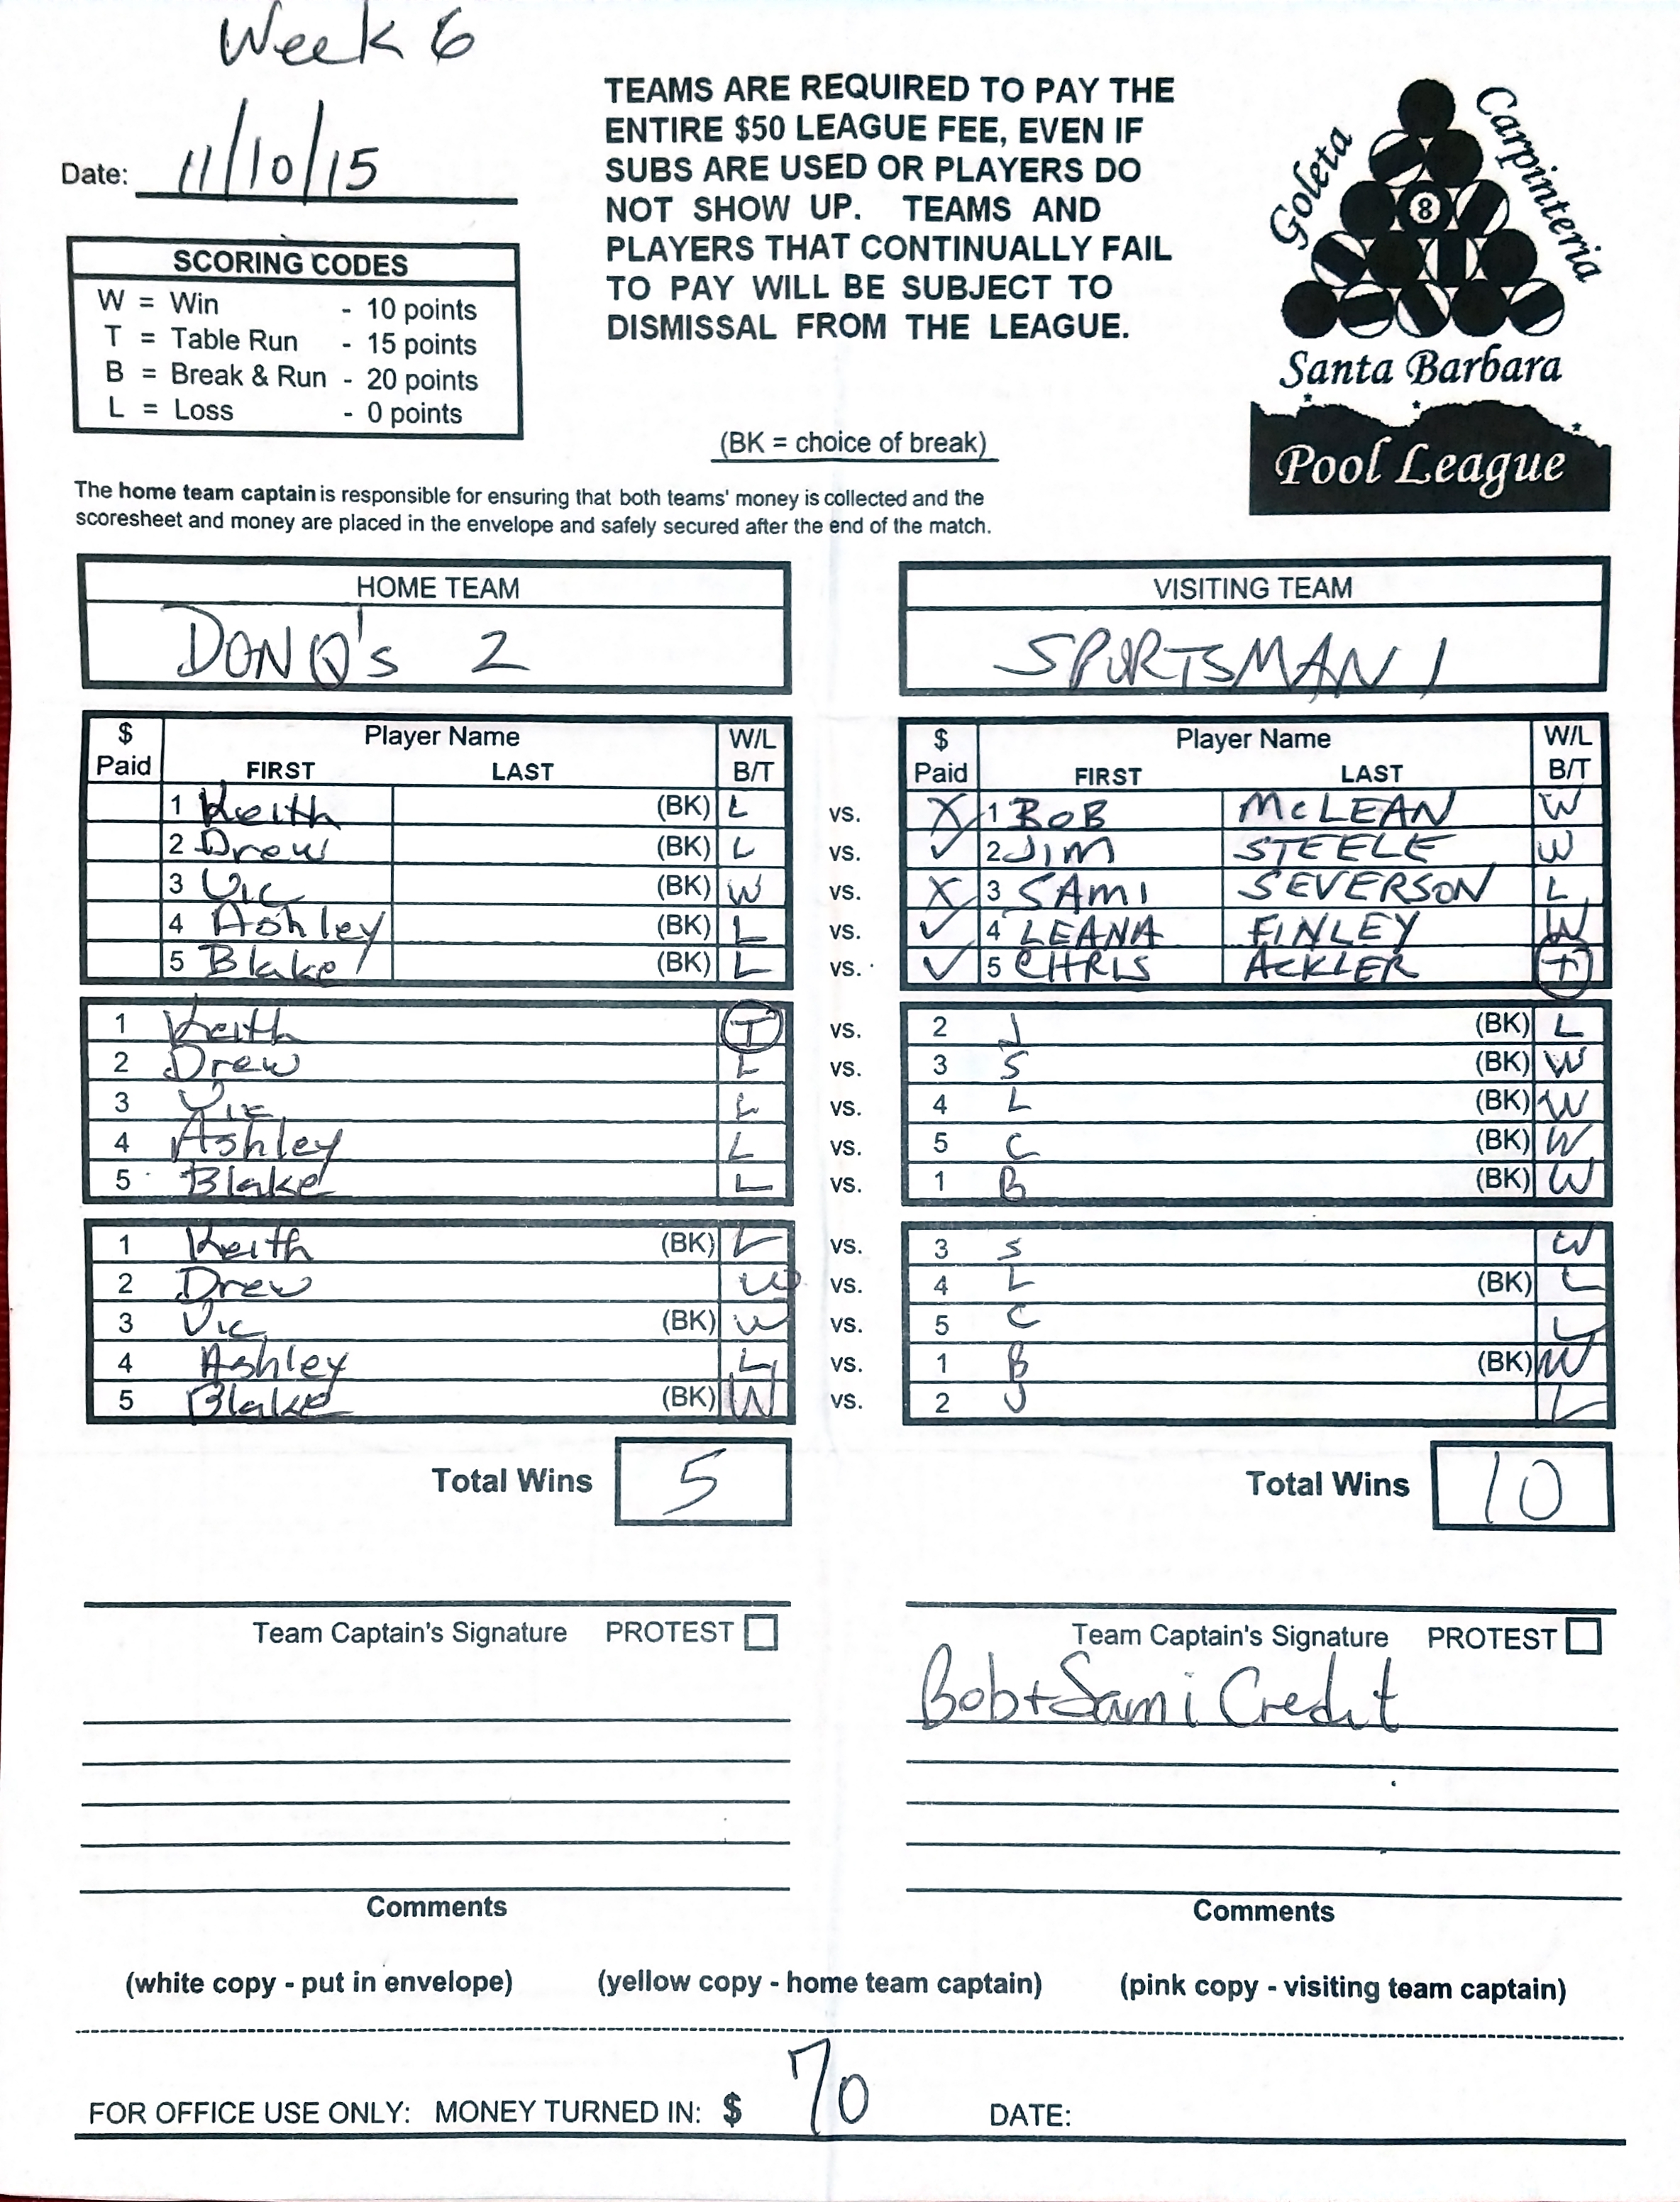 Week 6
Date: 11/10/15
TEAMS ARE REQUIRED TO PAY THE
ENTIRE $50 LEAGUE FEE, EVEN IF
SUBS ARE USED OR PLAYERS DO
NOT SHOW UP. TEAMS AND
PLAYERS THAT CONTINUALLY FAIL
TO PAY WILL BE SUBJECT TO
DISMISSAL FROM THE LEAGUE.
Goleta
Carpinteria
8
Santa Barbara
Pool League
SCORING CODES
W = Win - 10 points
T = Table Run - 15 points
B = Break & Run - 20 points
L = Loss - 0 points
(BK = choice of break)
The home team captain is responsible for ensuring that both teams' money is collected and the
scoresheet and money are placed in the envelope and safely secured after the end of the match.
HOME TEAM
DONQ's 2
VISITING TEAM
SPORTSMAN 1
$ Paid Player Name FIRST LAST W/L B/T
$ Paid Player Name FIRST LAST W/L B/T
1 Keith (BK) L vs. X 1 BOB McLEAN W
2 Drew (BK) L vs. ✓ 2 JIM STEELE W
3 Vic (BK) W vs. X 3 SAMI SEVERSON L
4 Ashley (BK) L vs. ✓ 4 LEANA FINLEY W
5 Blake (BK) L vs. ✓ 5 CHRIS ACKLER T
1 Keith T vs. 2 J (BK) L
2 Drew L vs. 3 S (BK) W
3 Vic L vs. 4 L (BK) W
4 Ashley L vs. 5 C (BK) W
5 Blake L vs. 1 B (BK) W
1 Keith (BK) L vs. 3 S W
2 Drew W vs. 4 L (BK) L
3 Vic (BK) W vs. 5 C L
4 Ashley L vs. 1 B (BK) W
5 Blake (BK) W vs. 2 J L
Total Wins 5
Total Wins 10
Team Captain's Signature PROTEST
Team Captain's Signature PROTEST
Bob+Sami Credit
Comments
Comments
(white copy - put in envelope) (yellow copy - home team captain) (pink copy - visiting team captain)
FOR OFFICE USE ONLY: MONEY TURNED IN: $ 70 DATE: